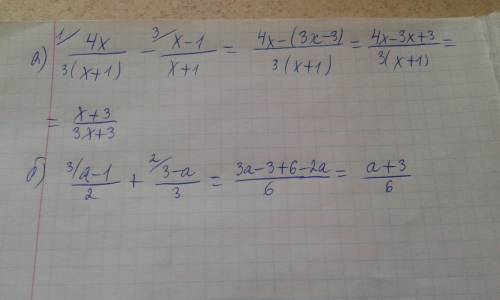 а) 1/ 4x/3(x+1) - 3/ x-1/x+1 = 4x-(3x-3)/3(x+1) = 4x-3x+3/3(x+1) =
= x+3/3x+3
б) 3/ a-1/2 + 2/ 3-a/3 = 3a-3+6-2a/6 = a+3/6